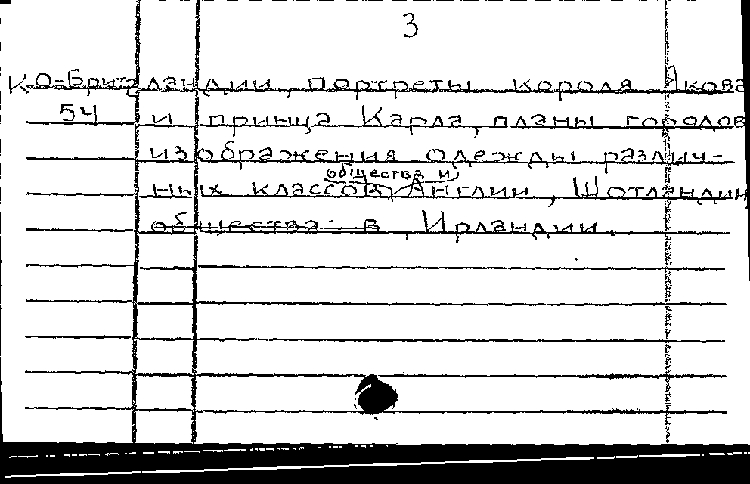 3
КО-Брит ландии, портреты короля Якова
54 и принца Карла, планы городов
изображения одежды различ-
общества и
ных классов Англии, Шотландии
общества в Ирландии.